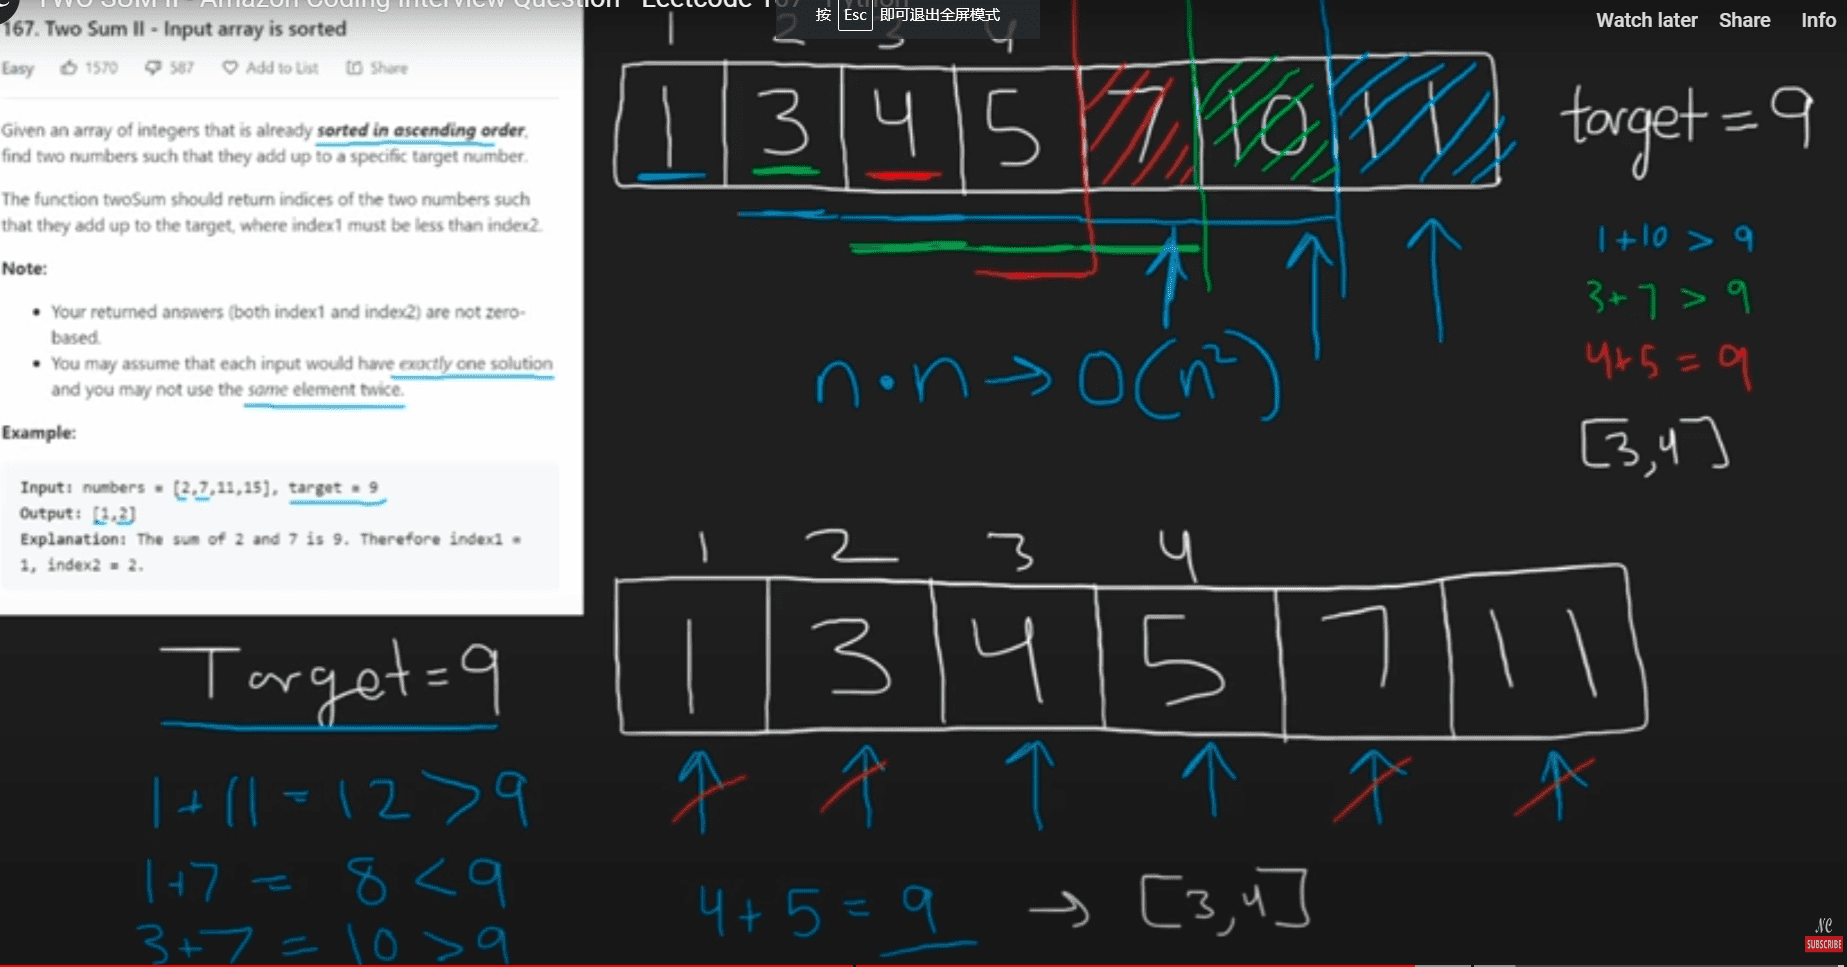 TWO SUM II - Amazon Coding Interview Question - Leetcode 167 - Python
按 Esc 即可退出全屏模式
Watch later Share Info
167. Two Sum II - Input array is sorted
Easy 1570 587 Add to List Share
Given an array of integers that is already sorted in ascending order,
find two numbers such that they add up to a specific target number.
The function twoSum should return indices of the two numbers such
that they add up to the target, where index1 must be less than index2.
Note:
• Your returned answers (both index1 and index2) are not zero-
based.
• You may assume that each input would have exactly one solution
and you may not use the same element twice.
Example:
Input: numbers = [2,7,11,15], target = 9
Output: [1,2]
Explanation: The sum of 2 and 7 is 9. Therefore index1 =
1, index2 = 2.
1 2 3 4
1 3 4 5 7 10 11
target = 9
1+10 > 9
3+7 > 9
4+5 = 9
[3,4]
n·n→O(n²)
1 2 3 4
1 3 4 5 7 11
Target=9
1+11=12>9
1+7=8<9
3+7=10>9
4+5=9→[3,4]
NC
SUBSCRIBE